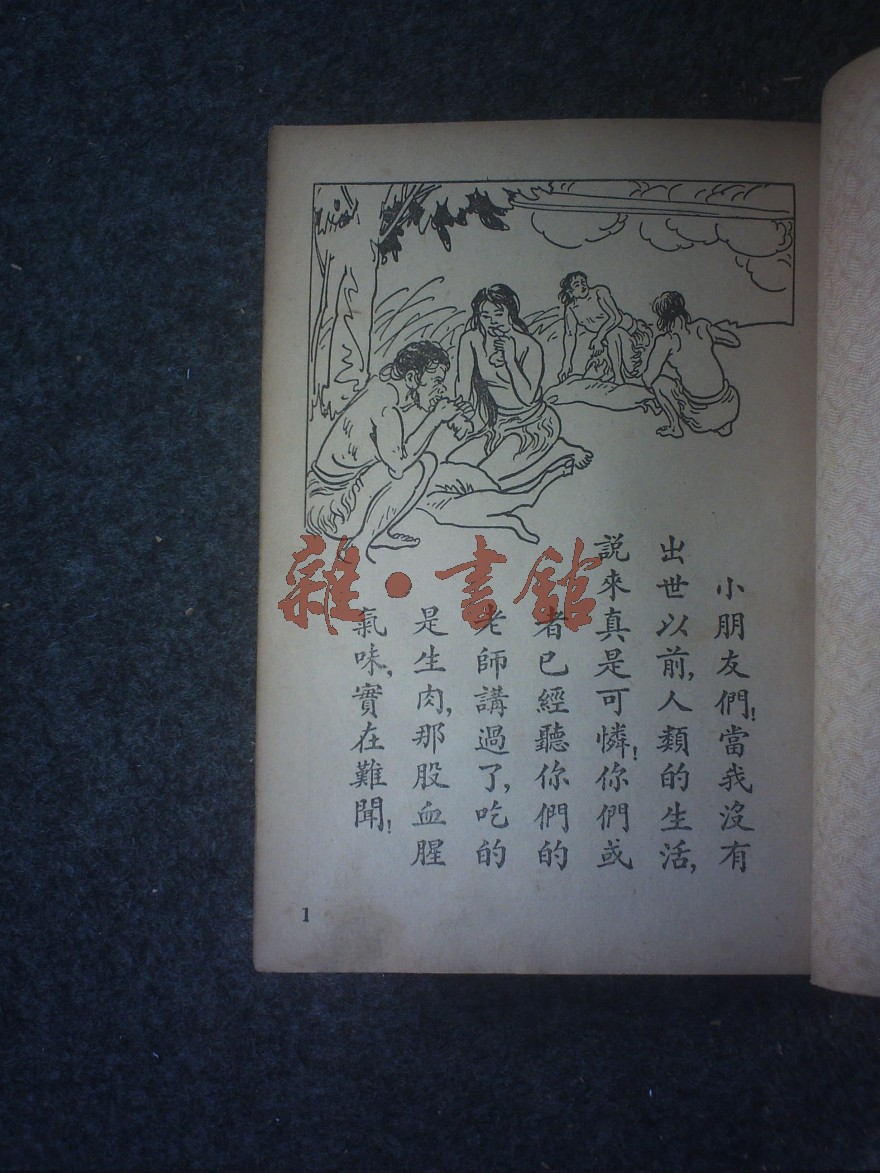 小朋友們!當我沒有
出世以前,人類的生活,
說來真是可憐!你們或
者已經聽你們的
老師講過了,吃的
是生肉,那股血腥
氣味,實在難聞!
1
雜·書館